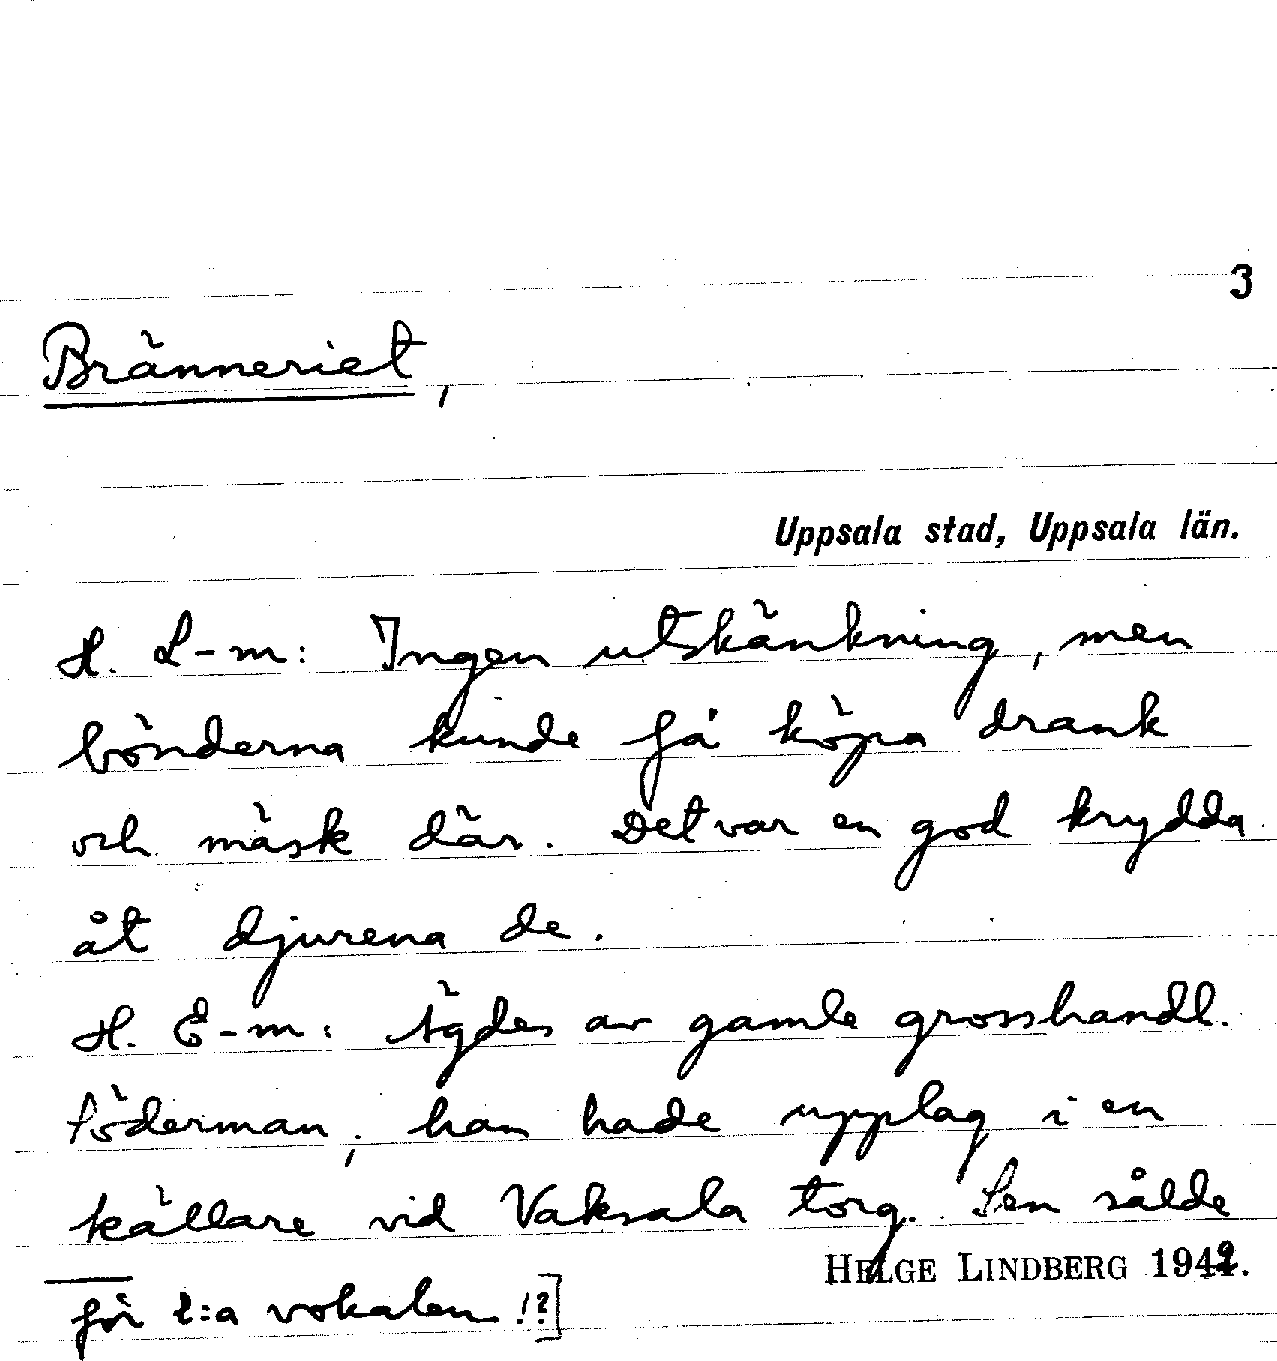 3
Bränneriet,
Uppsala stad, Uppsala län.
H. L-m: Ingen utskänkning, men
bönderna kunde få köpa drank
och mäsk där. Det var en god krydda
åt djurena de.
H. E-m: Ägdes av gamle grosshandl.
Söderman, han hade upplag i en
källare vid Vaksala torg. Sen sålde
HELGE LINDBERG 1942.
för 2:a vokalen !?]